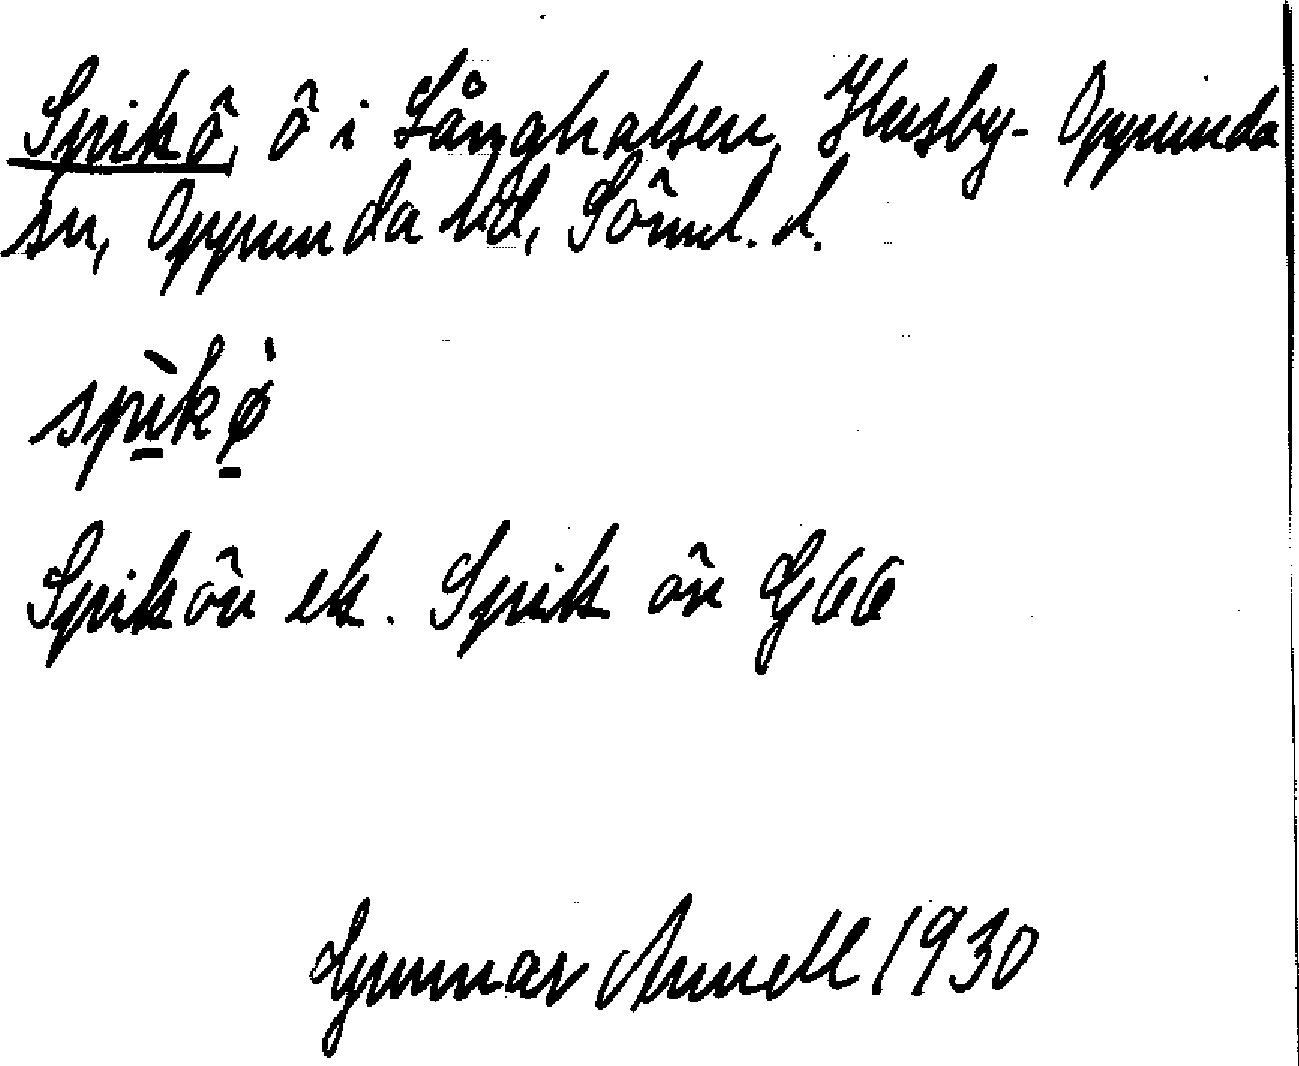 Spikö, ö i Långhalsen, Husby-Oppunda
sn, Oppunda hd, Söml. l.
spìkø̀
Spikön ek. Spik ön G66
Gunnar Arnell 1930